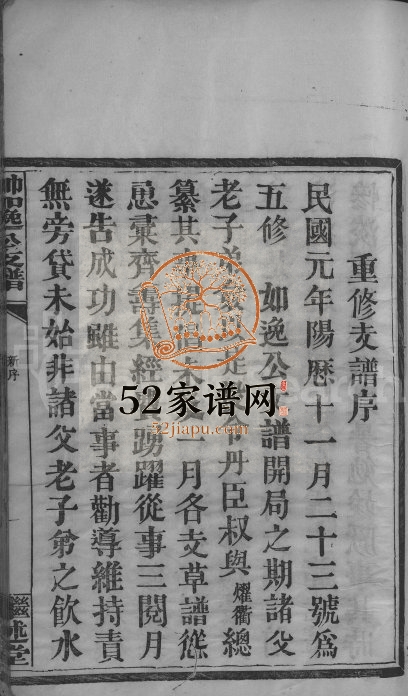 重修支譜序
民國元年陽歷十一月二十三號為
五修 如逸公支譜開局之期諸父
老子弟 丹臣叔與燿衢總
纂其事 月各支草譜慫
恿彙齊善集經 踴躍從事三閱月
遂告成功雖由當事者勸導維持責
無旁貸未始非諸父老子弟之飲水
帥如逸公支譜
新序
述堂
52家谱网
52jiapu.com